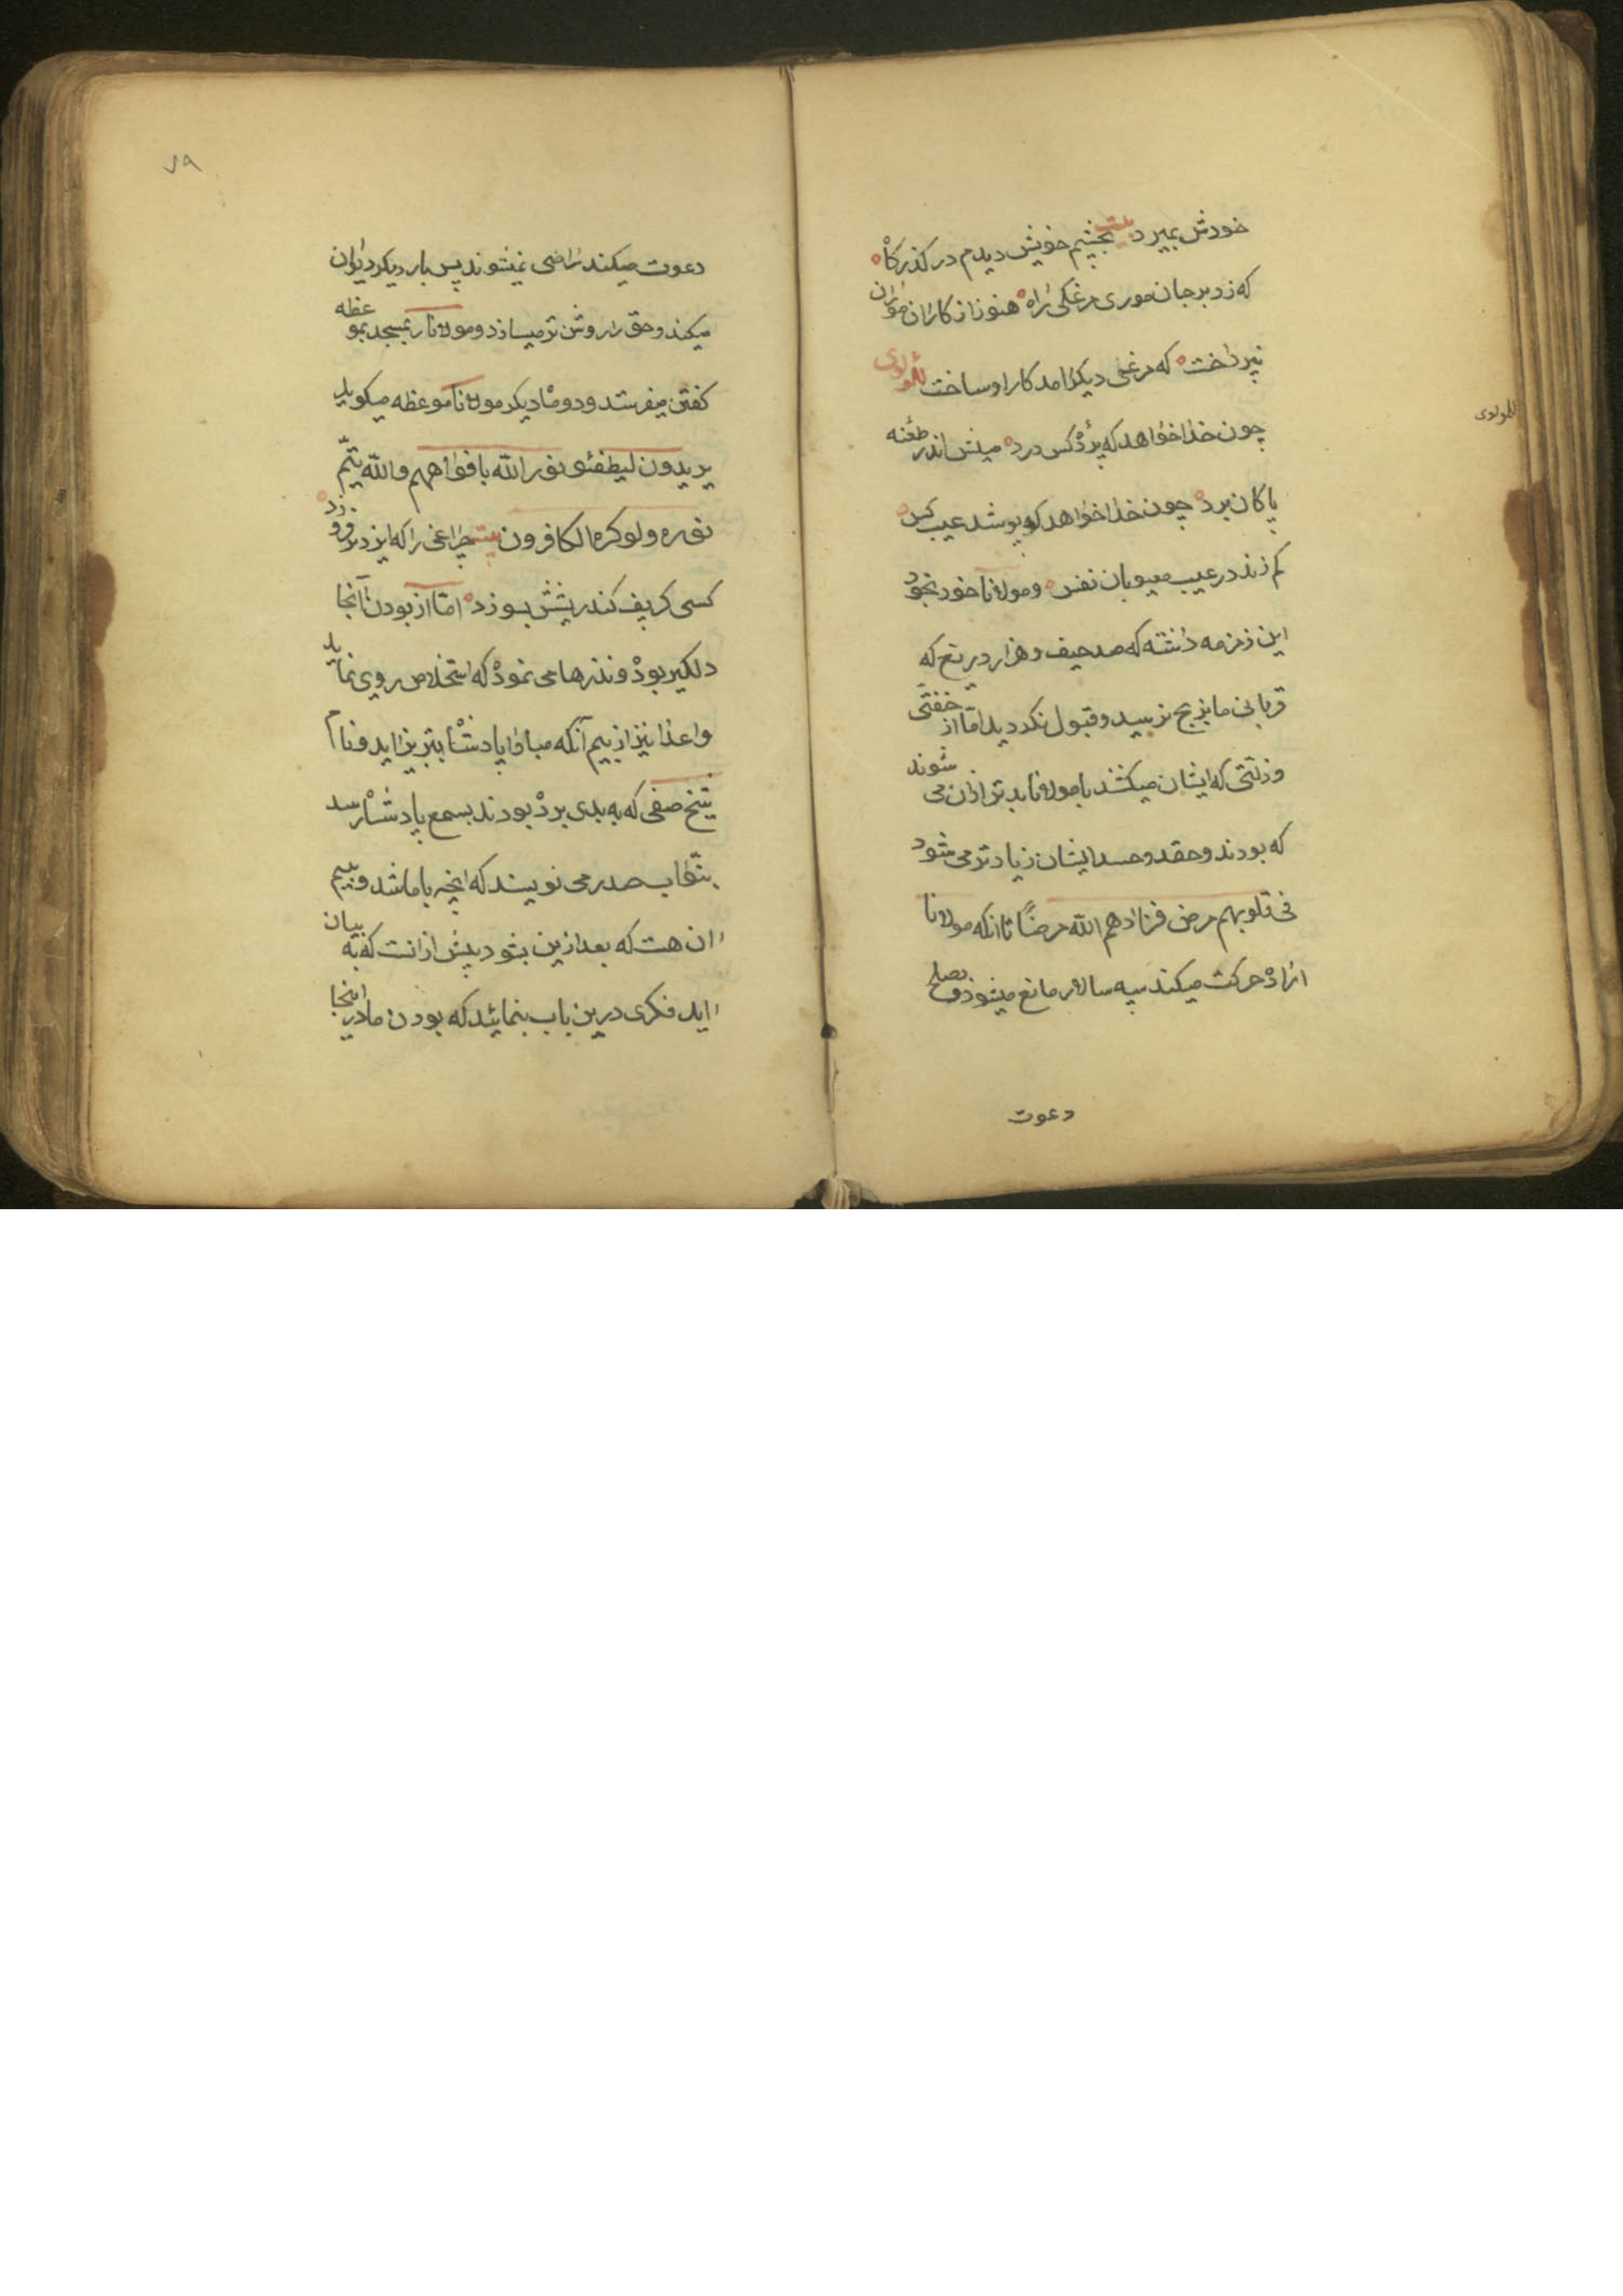 خودش بمیرد بیت بچشم خویش دیدم در کذرکاه
که زد بر جان موری مرغکی راه هنوز از کار ان موران
نپرداخت که مرغی دیکر امد کار او ساخت للمولوی
چون خذا خواهد که پرده کس درد میلش اندر طعنه
پاکان برد چون خذا خواهد که پوشد عیب کس
کم زند در عیب معیوبان نفس و مولانا خود بخود
این زمزمه داشته که صد حیف و هزار دریغ که
قربانی ما بذبح نرسید و قبول نکردید اما از خفتی
و ذلتی که ایشان میکشند با مولانا بدتر ازان می شوند
که بودند و حقد و حسد ایشان زیادتر می شود
فی قلوبهم مرض فزادهم الله مرضًا تا انکه مولانا
اراده حرکت میکند سپه سالار مانع میشوذ و بصلح
دعوت
للمولوی
۷۹
دعوت میکند راضی نمیشوند پس بار دیکر دیوان
میکند و حق را روشن تر میسازد و مولانا را بمسجد بموعظه
کفتن میفرستد و دو ماه دیکر مولانا موعظه میکوید
یریدون لیطفئو نور الله بافواههم والله یتّم
نوره ولو کره الکافرون بیت چراغی را که ایزد بر فروزد
کسی کر پف کند ریشش بسوزد اما از بودن آنجا
دلکیر بوده و نذرها می نموده که استخلاص روی نماید
و اعدا نیز از بیم آنکه مبادا پادشاه بتبریز اید و نام
شیخ صفی که به بدی برده بودند بسمع پادشاه رسد
بنوّاب صدر می نویسند که انچه با ما شد و بیم
ان هست که بعد ازین بشود بیش از انست که به بیان
اید فکری درین باب بنمائید که بودن ما در اینجا